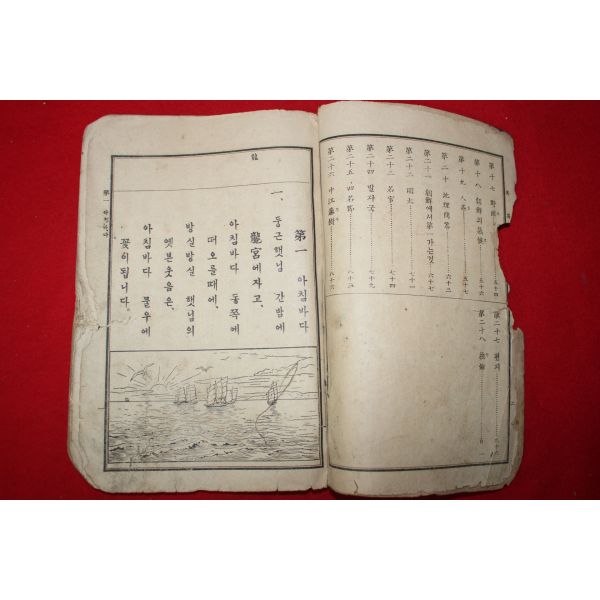 第十七 野球 五十四
第十八 朝鮮의 氣候 五十六
第十九 人蔘 五十七
第二十 地理問答 六十二
第二十一 朝鮮에서第一 가는것 六十七
第二十二 明太 七十一
第二十三 名官 七十四
第二十四 발자국 七十九
第二十五 四名節 八十二
第二十六 中江 八十六
第二十七 편지
第二十八
龍
第一 아침바다
一、 둥근햇님 간밤에
龍宮에자고、
아침바다 동쪽에
떠오를때에、
방실방실 햇님의
엣분웃음은、
아침바다 물우에
꽃이됩니다。
第一 아침바다